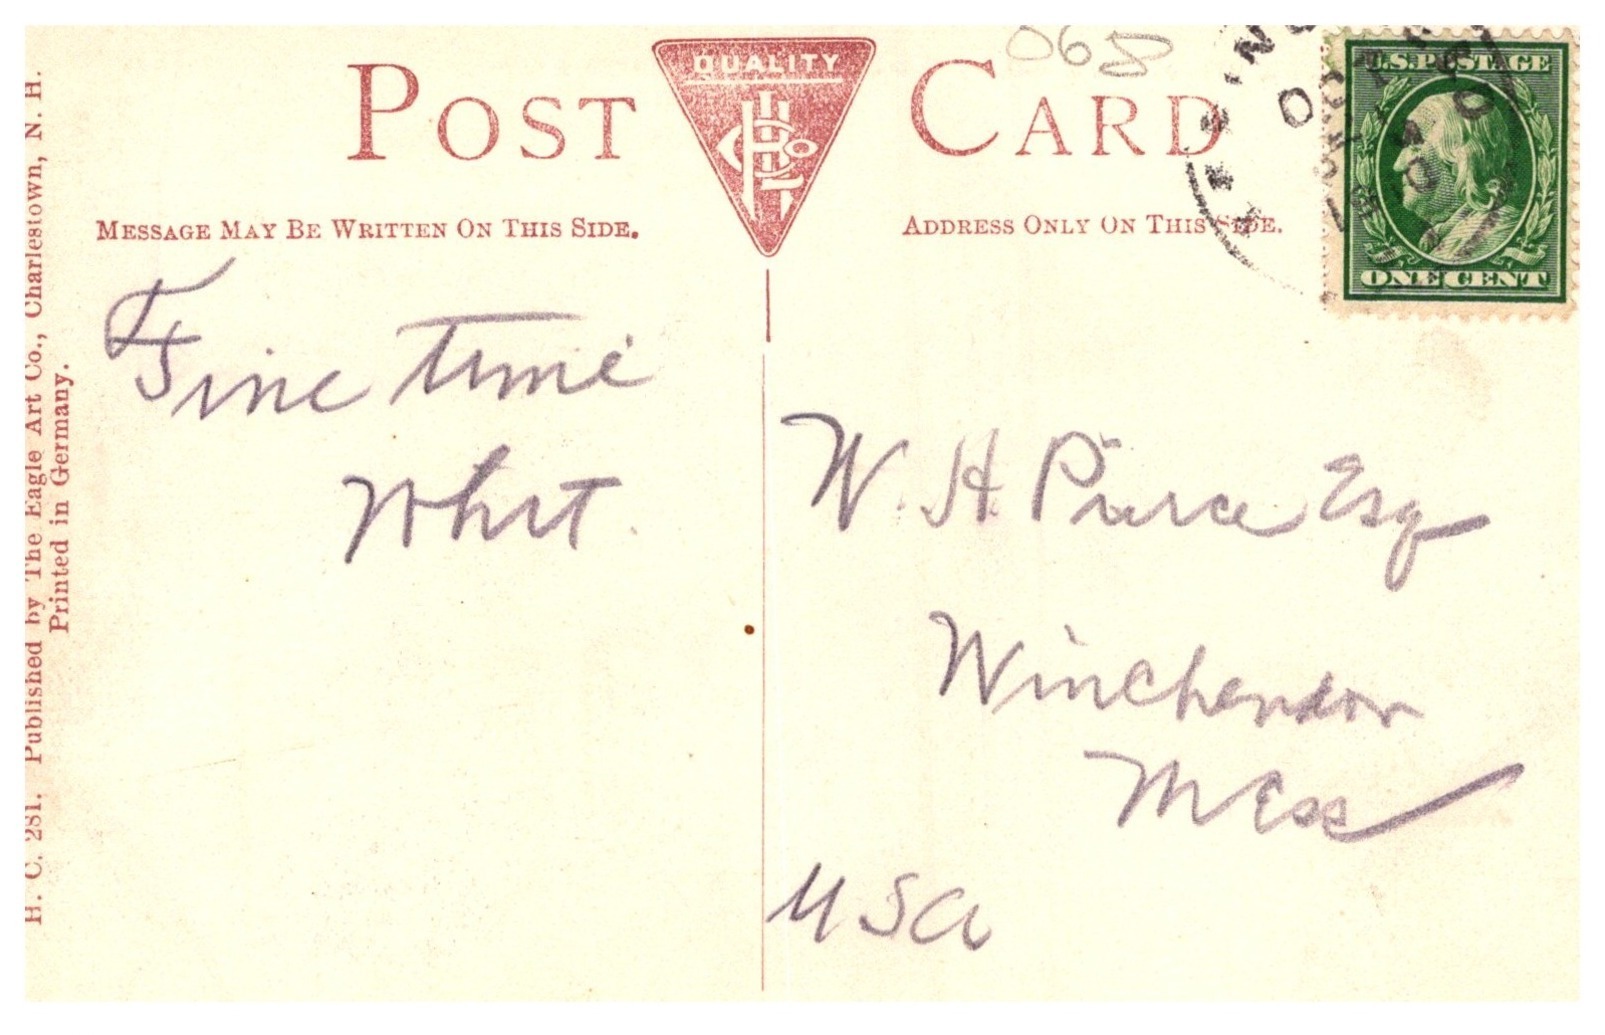 POST CARD
QUALITY
065
MESSAGE MAY BE WRITTEN ON THIS SIDE.
ADDRESS ONLY ON THIS SIDE.
U.S. POSTAGE
ONE CENT
OCT
Fine time
Whit.
W. H. Pierce Esq
Winchendon
Mass
USA
H. C. 281. Published by The Eagle Art Co., Charlestown, N. H.
Printed in Germany.